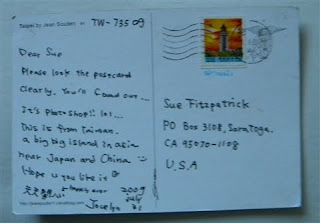 Taipei by Jean Scuderi
TW-73509
Dear Sue
Please look the postcard
clearly. You'll found out...
It's Photoshop!! lol...
This is from Taiwan.
a big big island in asia
near Japan and China
Hope u you like it
2009
July
Jocelyn 21
Sue Fitzpatrick
PO Box 3108, Saratoga
CA 95070-1108
U.S.A